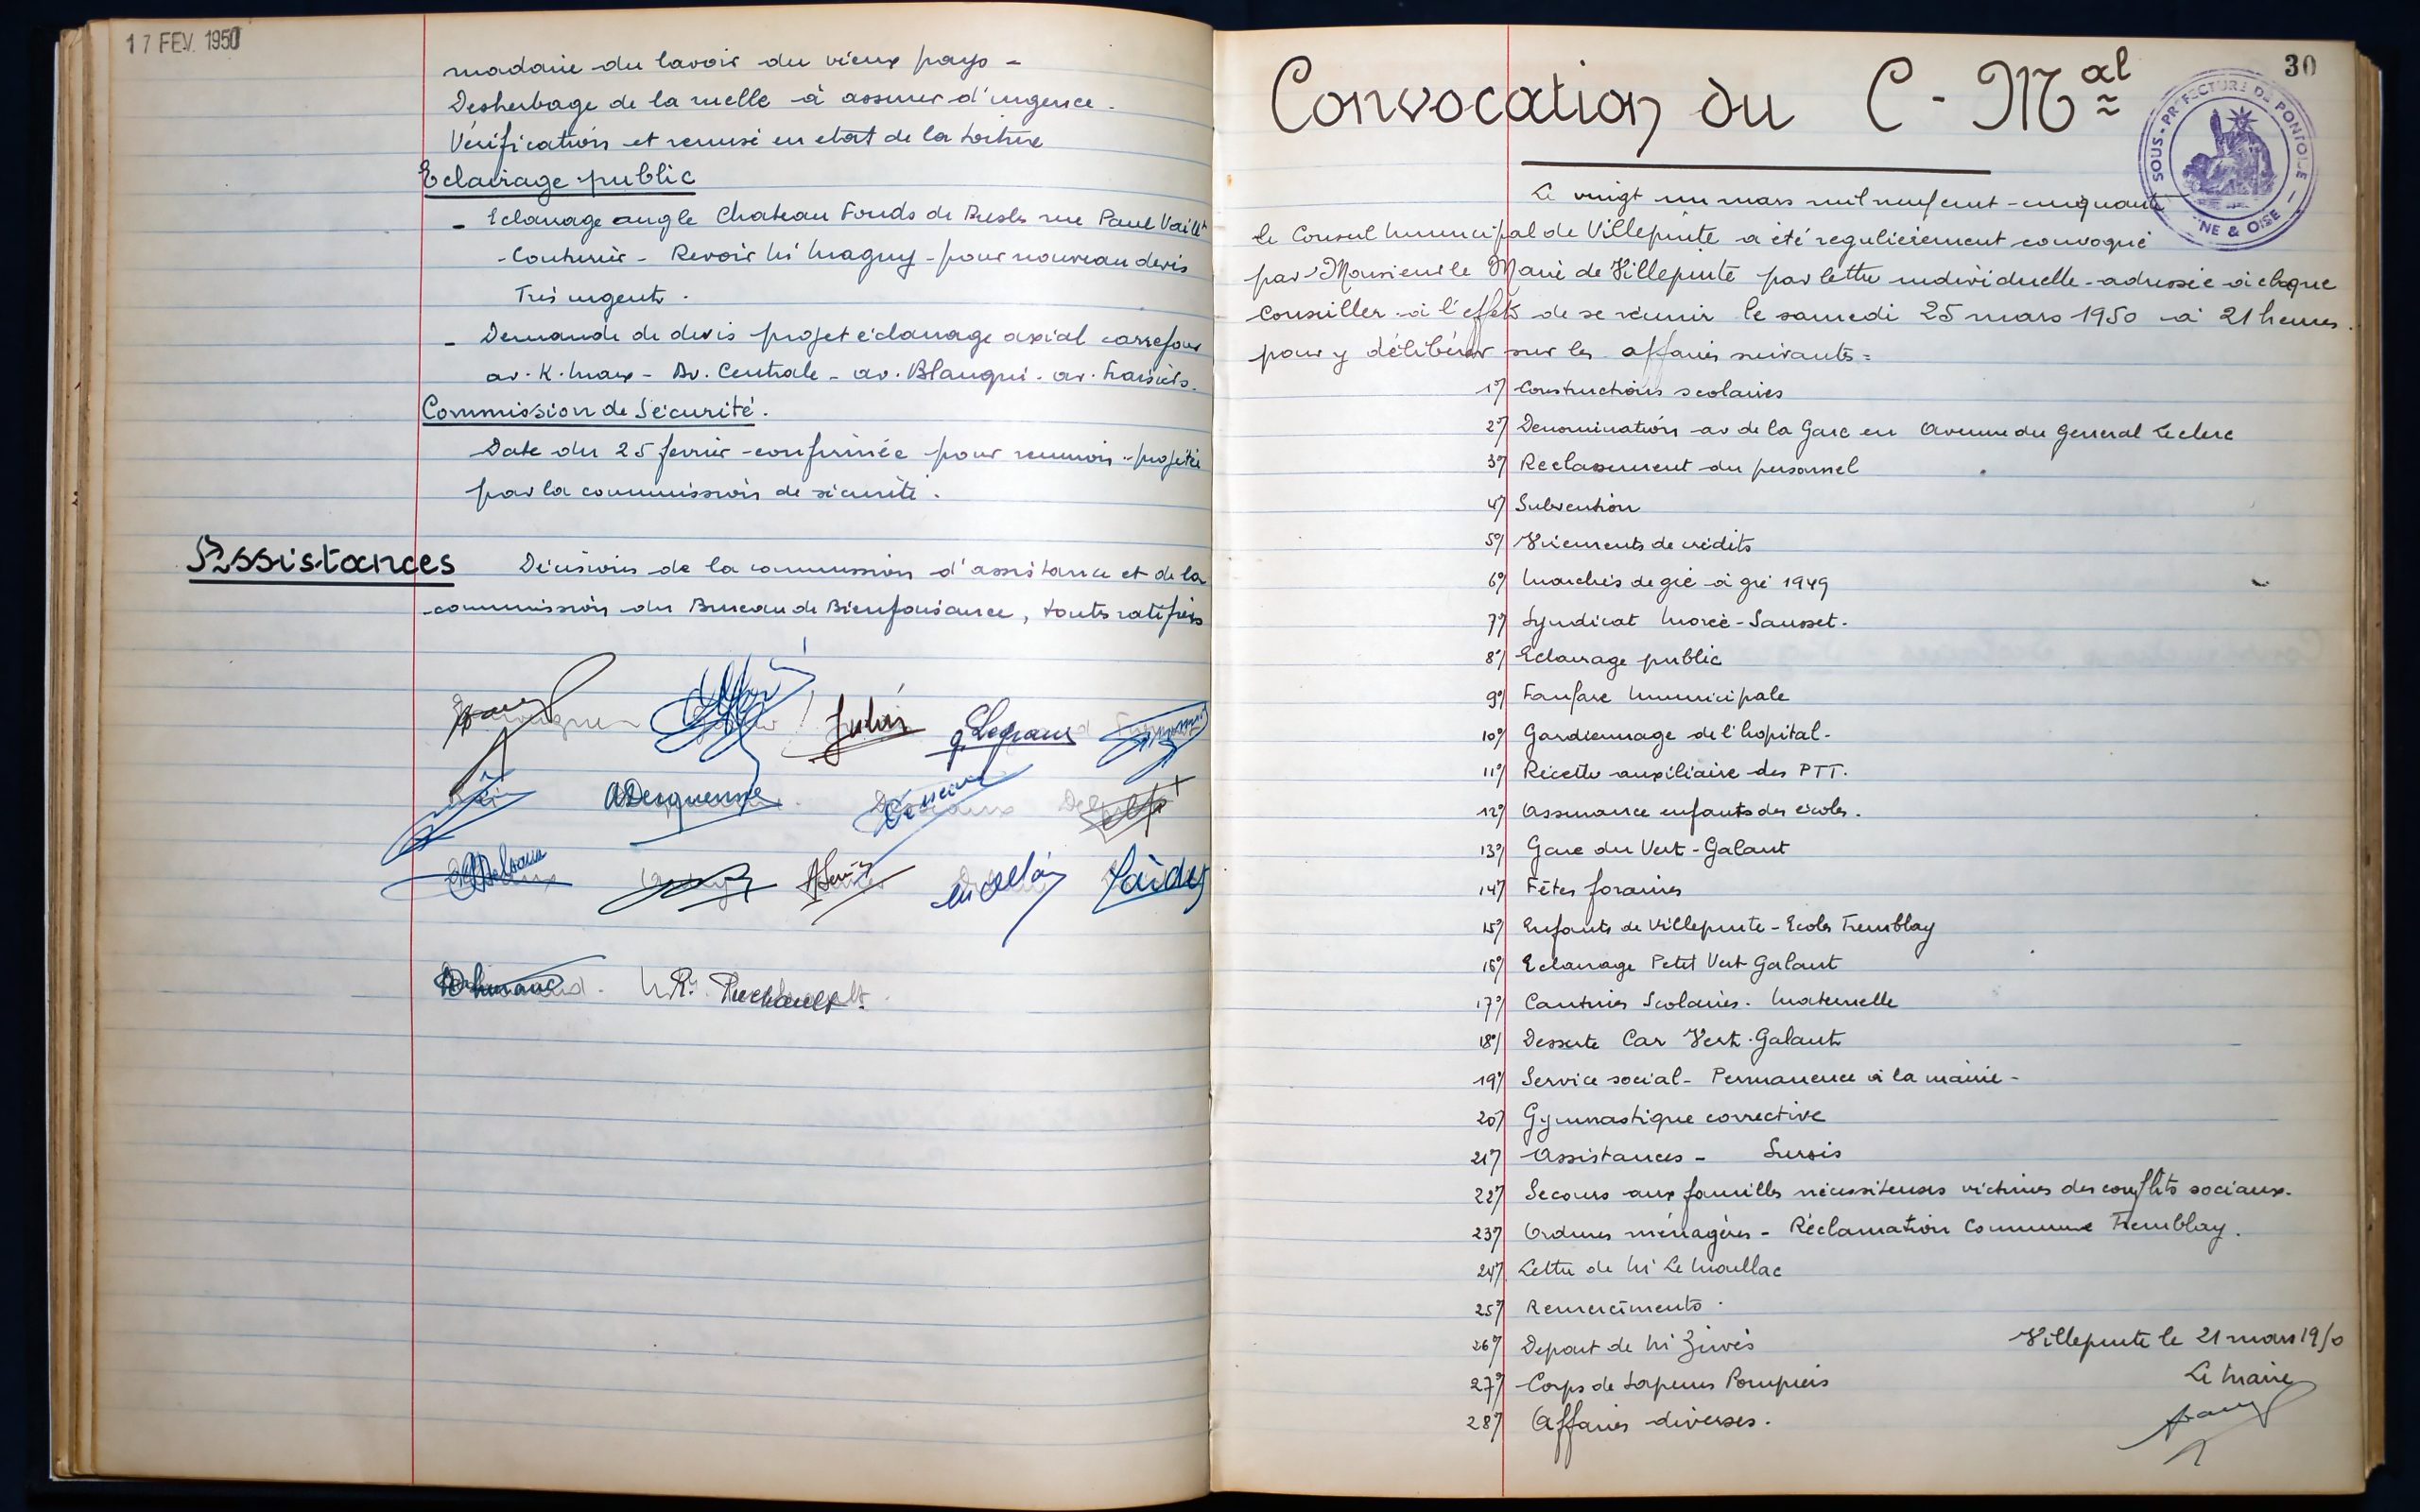 17 FEV. 1950
madaire du lavoir du vieux pays -
Desherbage de la ruelle à assurer d'urgence.
Vérification et remise en etat de la toiture
Eclairage public
- Eclairage angle Chateau Fonds de Presles rue Paul Vaillt
Couturier - Revoir Mr Magny - pour nouveau devis
Très urgent.
- Demande de devis projet éclairage axial carrefour
av. K. Marx - Av. Centrale - av. Blanqui - av.
Commission de Sécurité.
Date du 25 fevrier confirmée pour reunion projetée
par la commission de sécurité.
Assistances Décisions de la commission d'assistance et de la
commission du Bureau de Bienfaisance, toutes ratifiées
Julin G. Legrand
ADuquenne
30
Convocation du C - Mal
SOUS-PREFECTURE DE PONTOISE
NE & OISE
Le vingt un mars mil neuf cent cinquante
le Conseil Municipal de Villepinte a été regulièrement convoqué
par Monsieur le Maire de Villepinte par lettre individuelle adressée à chaque
Conseiller à l'effet de se réunir le samedi 25 mars 1950 à 21 heures
pour y délibérer sur les affaires suivantes =
1°/ Constructions scolaires
2°/ Denomination av de la Gare en Avenue du General Leclerc
3°/ Reclassement du personnel
4°/ Subvention
5°/ Virements de crédits
6°/ Marchés de gré à gré 1949
7°/ Syndicat Morée-Sausset.
8°/ Eclairage public
9°/ Fanfare Municipale
10°/ Gardiennage de l'hopital -
11°/ Recette auxiliaire des PTT.
12°/ Assurance enfants des écoles.
13°/ Gare du Vert-Galant
14°/ Fêtes foraines
15°/ Enfants de Villepinte - Ecoles Tremblay
16°/ Eclairage Petit Vert Galant
17°/ Cantines Scolaires. Maternelle
18°/ Desserte Car Vert-Galant
19°/ Service social - Permanence à la mairie -
20°/ Gymnastique corrective
21°/ Assistances - Sursis
22°/ Secours aux familles nécessiteuses victimes des conflits sociaux.
23°/ Ordures ménagères - Réclamation Commune Tremblay.
24°/ Lettre de Mr Le Moullac
25°/ Remerciments.
26°/ Depart de Mr
27°/ Corps de Sapeurs Pompiers
28°/ Affaires diverses.
Villepinte le 21 mars 1950
Le Maire